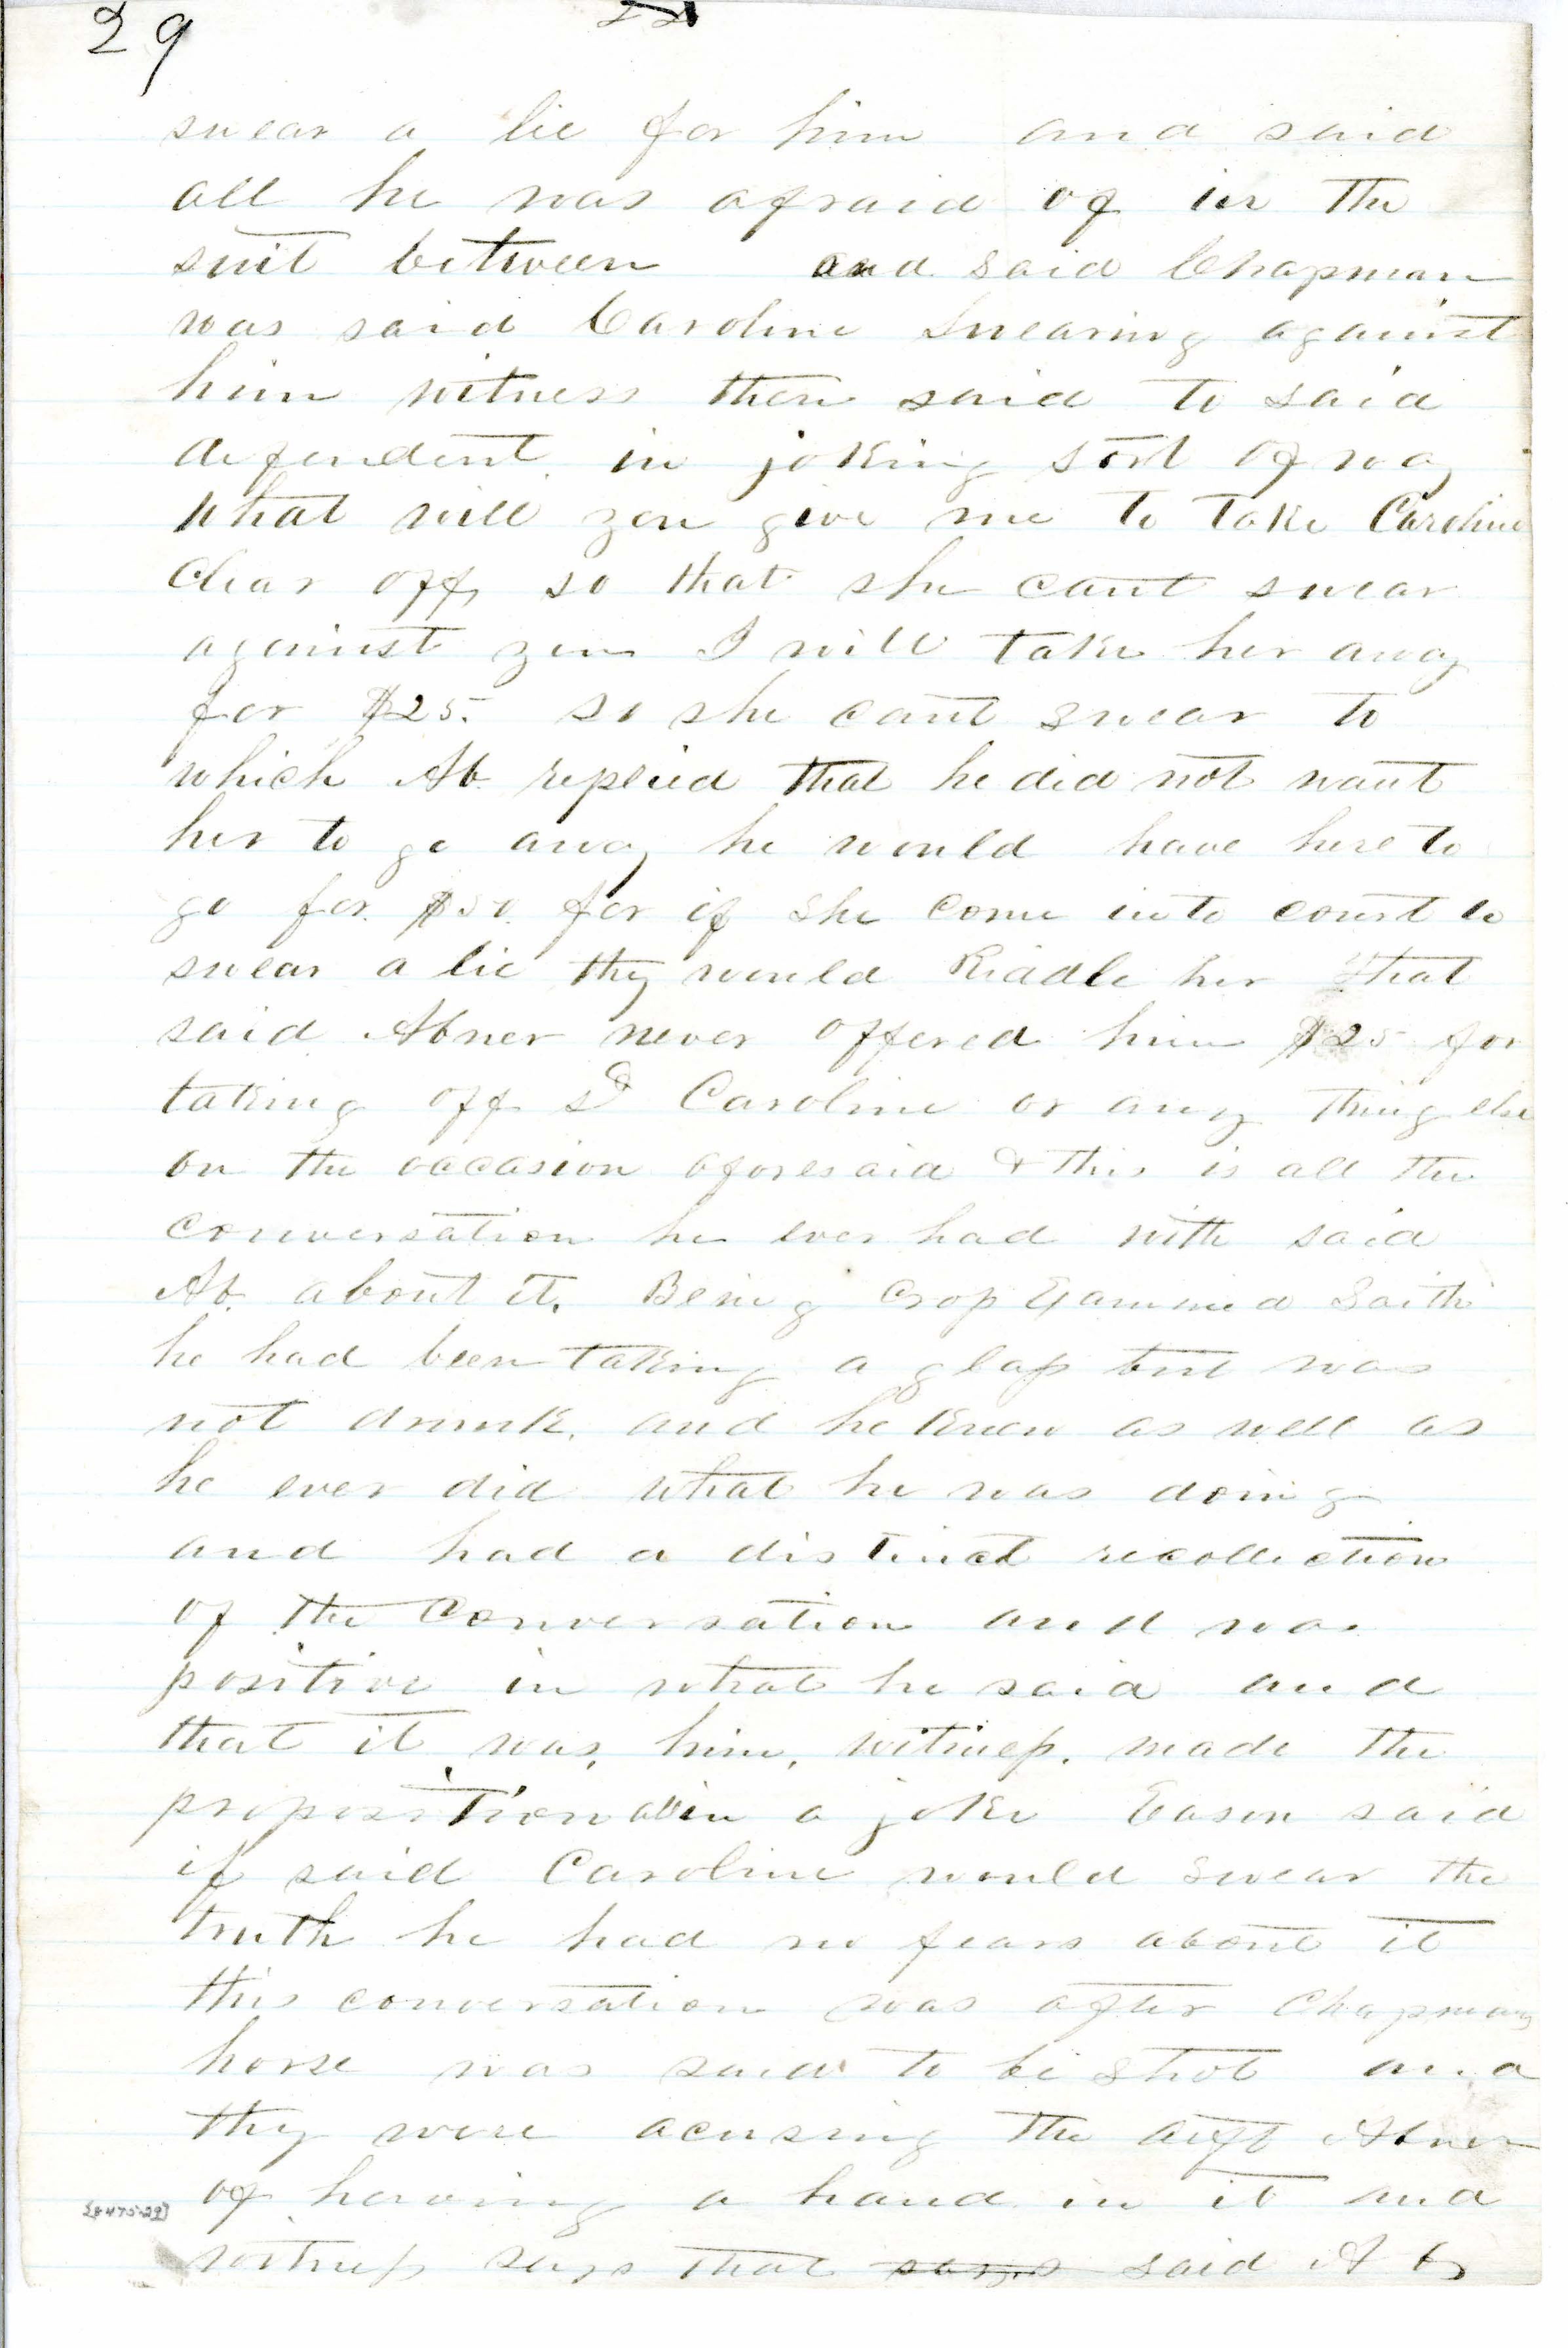 29
swear a lie for him and said
all he was afraid of in the
suit between and said Chapman
was said Caroline Swearing against
him witness then said to said
defendent in joking sort of way
what will you give me to take Caroline
Clear off so that she cant swear
against you I will take her away
for $25. so she cant swear to
which Ab. replied that he did not want
her to go away he would have here to
go for $50. for if she come into court to
swear a lie they would Riddle her that
said Abner never offered him $25 for
taking off sd Caroline or any thing else
on the occasion aforesaid & this is all the
conversation he ever had with said
Ab. about it. Being Cross Examined Saith
he had been taking a glass but was
not drunk. and he knew as well as
he ever did what he was doing
and had a distinct recollection
of the conversation and was
positive in what he said and
that it was, him, witness. made the
proposition in a joke Eason said
if said Caroline would swear the
truth he had no fears about it
this conversation was after Chapmans
horse was said to be shot and
they were acusing the deft Abner
of having a hand in it and
witness says that says said Ab
[8475-29]